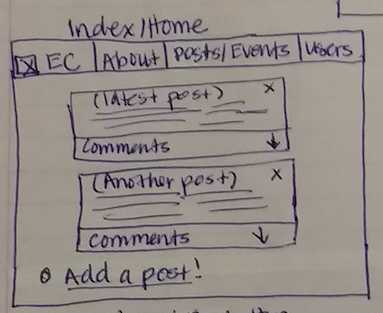 Index/Home
EC About Posts/Events Users
(latest post) x
Comments
(Another post) x
Comments
Add a post!